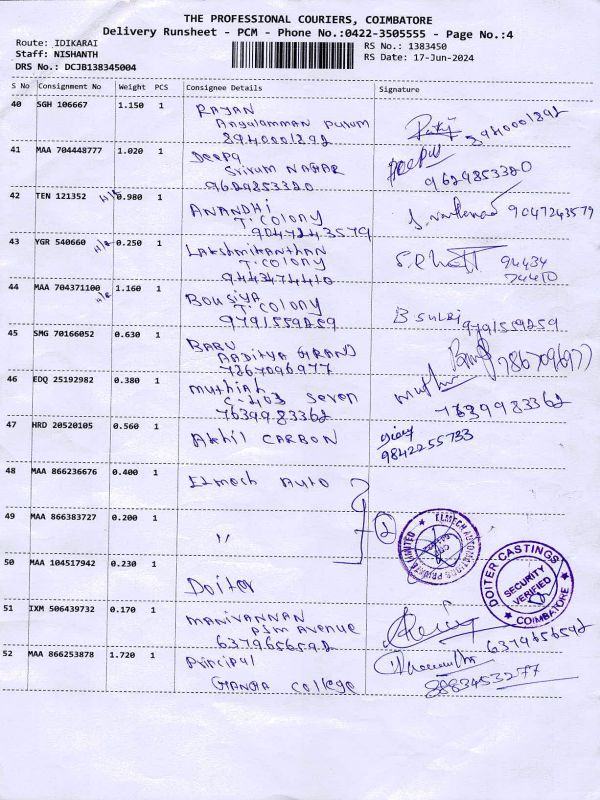 THE PROFESSIONAL COURIERS, COIMBATORE
Delivery Runsheet - PCM - Phone No.:0422-3505555 - Page No.:4
Route: IDIKARAI
Staff: NISHANTH
DRS No.: DCJB138345004
RS No.: 1383450
RS Date: 17-Jun-2024
S No Consignment No Weight PCS Consignee Details Signature
40 SGH 106667 1.150 1 RAJAN
Angalamman Puram
8940001892 8940001892
41 MAA 704448777 1.020 1 Deepa
Sriram NAGAR
9629853320 9629853320
42 TEN 121352 0.980 1 ANANDHI
T. COLONY
9047243579 9047243579
43 YGR 540660 0.250 1 Lakshmikanthan
T. COLONY
9443474410 94434
74410
44 MAA 704371100 1.160 1 Bousiya
T. COLONY
9791559259 9791559259
45 SMG 70166052 0.630 1 BABU
AADITYA GRAND
7867096977 7867096977
46 EDQ 25192982 0.380 1 muthiah
C-403 Seven
7639983362 7639983362
47 HRD 20520105 0.560 1 Akhil CARBON
9842255733
48 MAA 866236676 0.400 1 Elmech Auto
49 MAA 866383727 0.200 1 "
2
50 MAA 104517942 0.230 1 Doiter
DOITER CASTINGS
SECURITY
VERIFIED
COIMBATORE
51 IXM 506439732 0.170 1 MANIVANNAN
PSM Avenue
6379656592 6379656592
52 MAA 866253878 1.720 1 Principal
Ganga College
8883453277